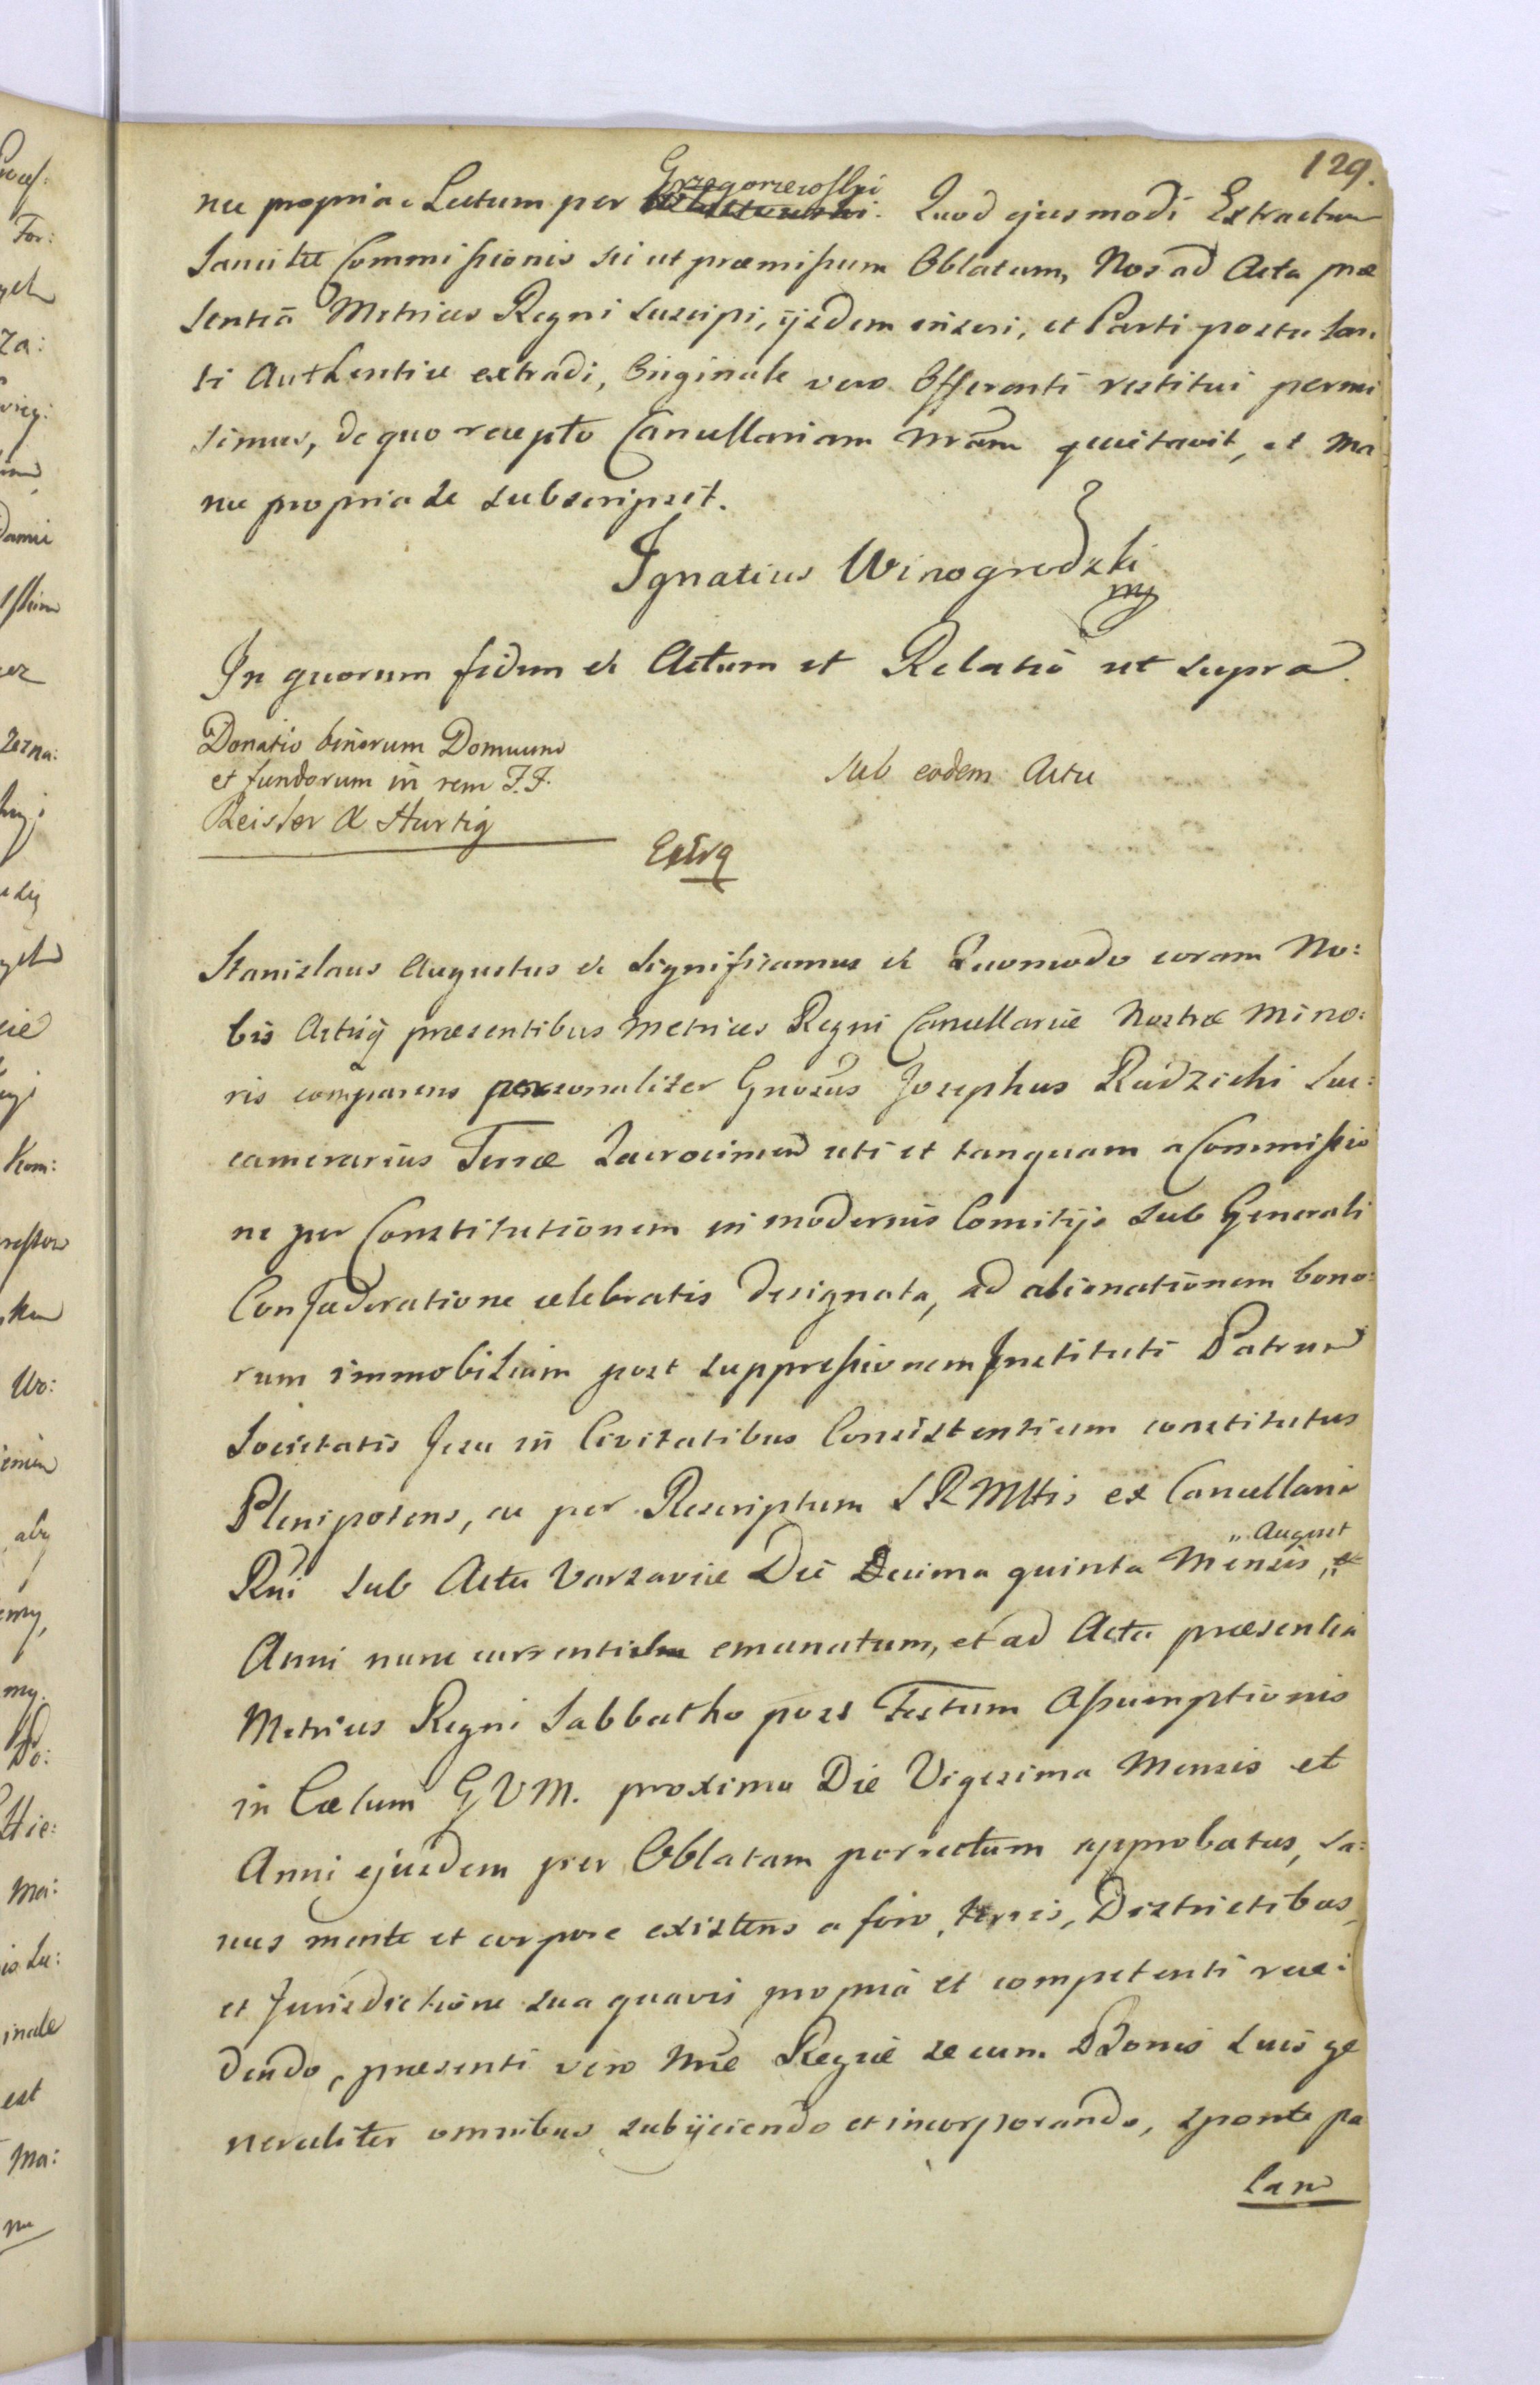 129.
nu propria. Lectum per Grzegorzewski. Quod ejusmodi Extractum
Sancitæ Commissionis sic ut præmissum Oblatum, Nos ad Acta præ
sentia Metrices Regni suscipi, ijsdem inseri, et Parti postulan
ti Authentice extradi, Originale vero Offerenti restitui permi
simus, de quo recepto Cancellariam Nram quietavit, et ma
nu propria se subscripsit.
Ignatius Winogrodzki
mp
In quorum fidem &c Actum et Relatio ut supra.
Donatio binorum Domuum
et fundorum in rem F.F.
Reisler & Hurtig
Sub eodem Actu
Extrq
Stanislaus Augustus &c Significamus &c Quomodo coram No:
bis Actisq præsentibus Metrices Regni Cancellariæ Nostræ Mino:
ris comparens personaliter Gnosus Josephus Radzicki Suc:
camerarius Terræ Zacrocimen uti et tanquam a Commissio
ne per Constitutionem in modernis Comitijs sub Generali
Confæderatione celebratis designata, ad alienationem bono:
rum immobilium post suppressionem Instituti Patrum
Societatis Jesu in Civitatibus Consistentium constitutus
Plenipotens, ac per Rescriptum S R Mttis ex Cancellaria
Rni sub Actu Varsaviæ Die Decima quinta Mensis „ August et
Anni nunc currentis emanatum, et ad Acta præsentia
Metrices Regni Sabbatho post Festum Assumptionis
in Cælum G V M. proximo Die Vigesima Mensis et
Anni ejusdem per Oblatam porrectum approbatus, sa:
nus mente et corpore existens a foro, terris, Districtibus,
et Jurisdictione sua quavis propria et competenti rece:
dendo, præsenti vero Nræ Regiæ se cum Bonis suis ge
neraliter omnibus subijciendo et incorporando, sponte pa
lam